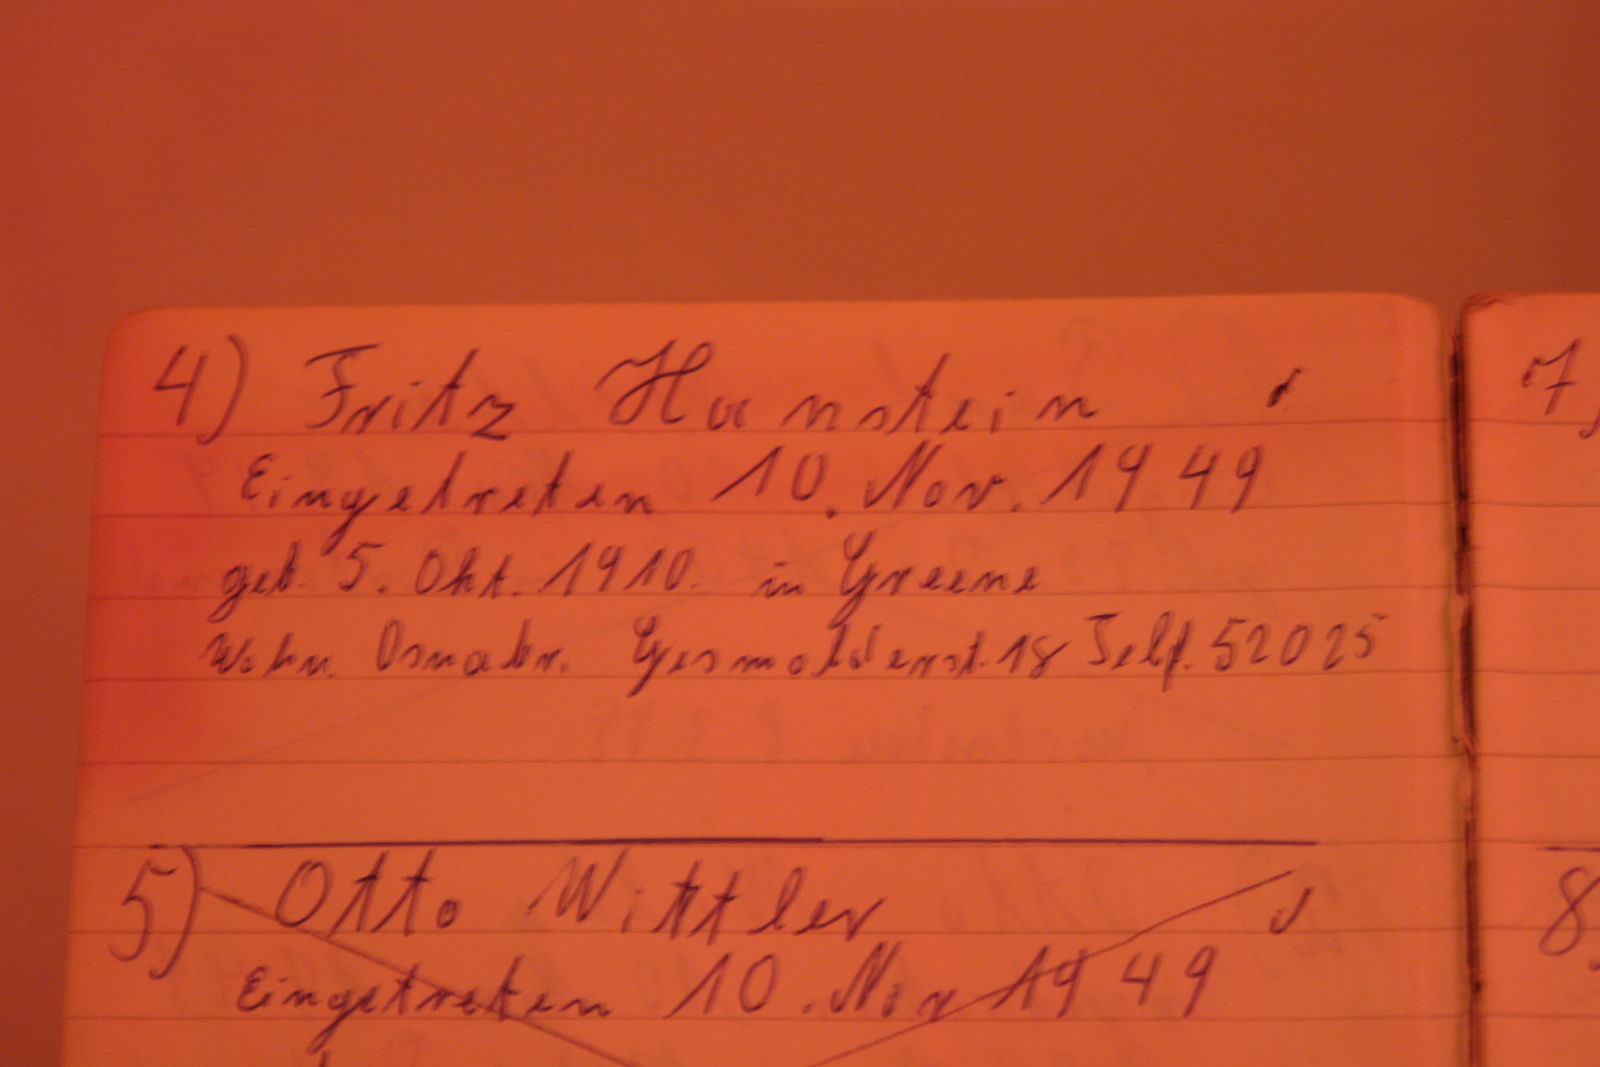 4) Fritz Hanstein
Eingetreten 10. Nov. 1949
geb. 5. Okt. 1910. in Greene
Wohn. Osnabr. Gesmolderst. 18 Telf. 52025
5) Otto Wittler
Eingetreten 10. Nov 1949
7)
8)